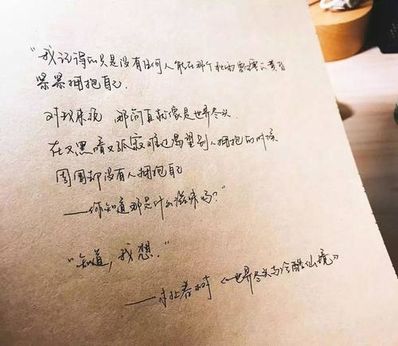 “我记得的只是没有任何人能在那个秋雨霏霏的黄昏
紧紧拥抱自己.
对我来说 那简直就像是世界尽头.
在又黑暗又孤寂难过渴望别人拥抱的时候
周围却没有人拥抱自己
——你知道那是什么滋味吗?”
“知道,我想.”
——村上春树《世界尽头与冷酷仙境》